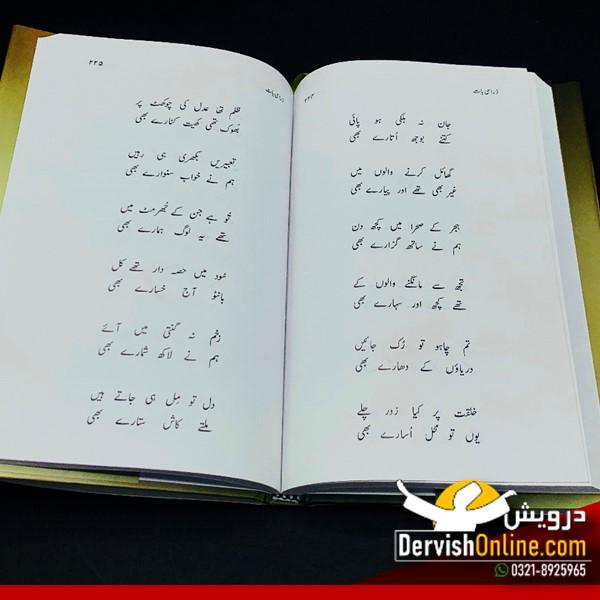 ذرا سی بات
۲۲۴
جان نہ ہلکی ہو پائی
کتنے بوجھ اُتارے بھی
گھائل کرنے والوں میں
غیر بھی تھے اور پیارے بھی
ہجر کے صحرا میں کچھ دن
ہم نے ساتھ گزارے بھی
تجھ سے مانگنے والوں کے
تھے کچھ اور سہارے بھی
تم چاہو تو رُک جائیں
دریاؤں کے دھارے بھی
خلقت پر کیا زور چلے
یوں تو محل اُسارے بھی
ذرا سی بات
۲۲۵
ظلم تھا عدل کی چوکھٹ پر
بھوک تھی کھیت کنارے بھی
تعبیریں بکھری ہی رہیں
ہم نے خواب سنوارے بھی
محو ہے جن کے جُھرمٹ میں
تھے یہ لوگ ہمارے بھی
سُود میں حصہ دار تھے کل
بانٹو آج خسارے بھی
زخم نہ گنتی میں آئے
ہم نے لاکھ شمارے بھی
دل تو مِل ہی جاتے ہیں
ملتے کاش ستارے بھی
درویش
DervishOnline.com
0321-8925965